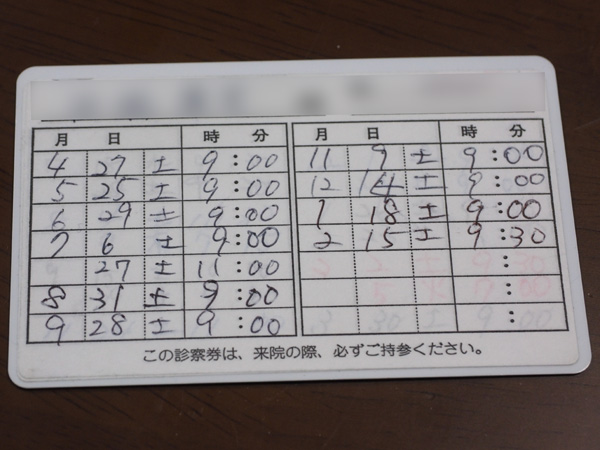 月 日 時 分
4 27 土 9:00
5 25 土 9:00
6 29 土 9:00
7 6 土 9:00
27 土 11:00
8 31 土 9:00
9 28 土 9:00
月 日 時 分
11 9 土 9:00
12 14 土 9:00
1 18 土 9:00
2 15 土 9:30
:
:
:
この診察券は、来院の際、必ずご持参ください。